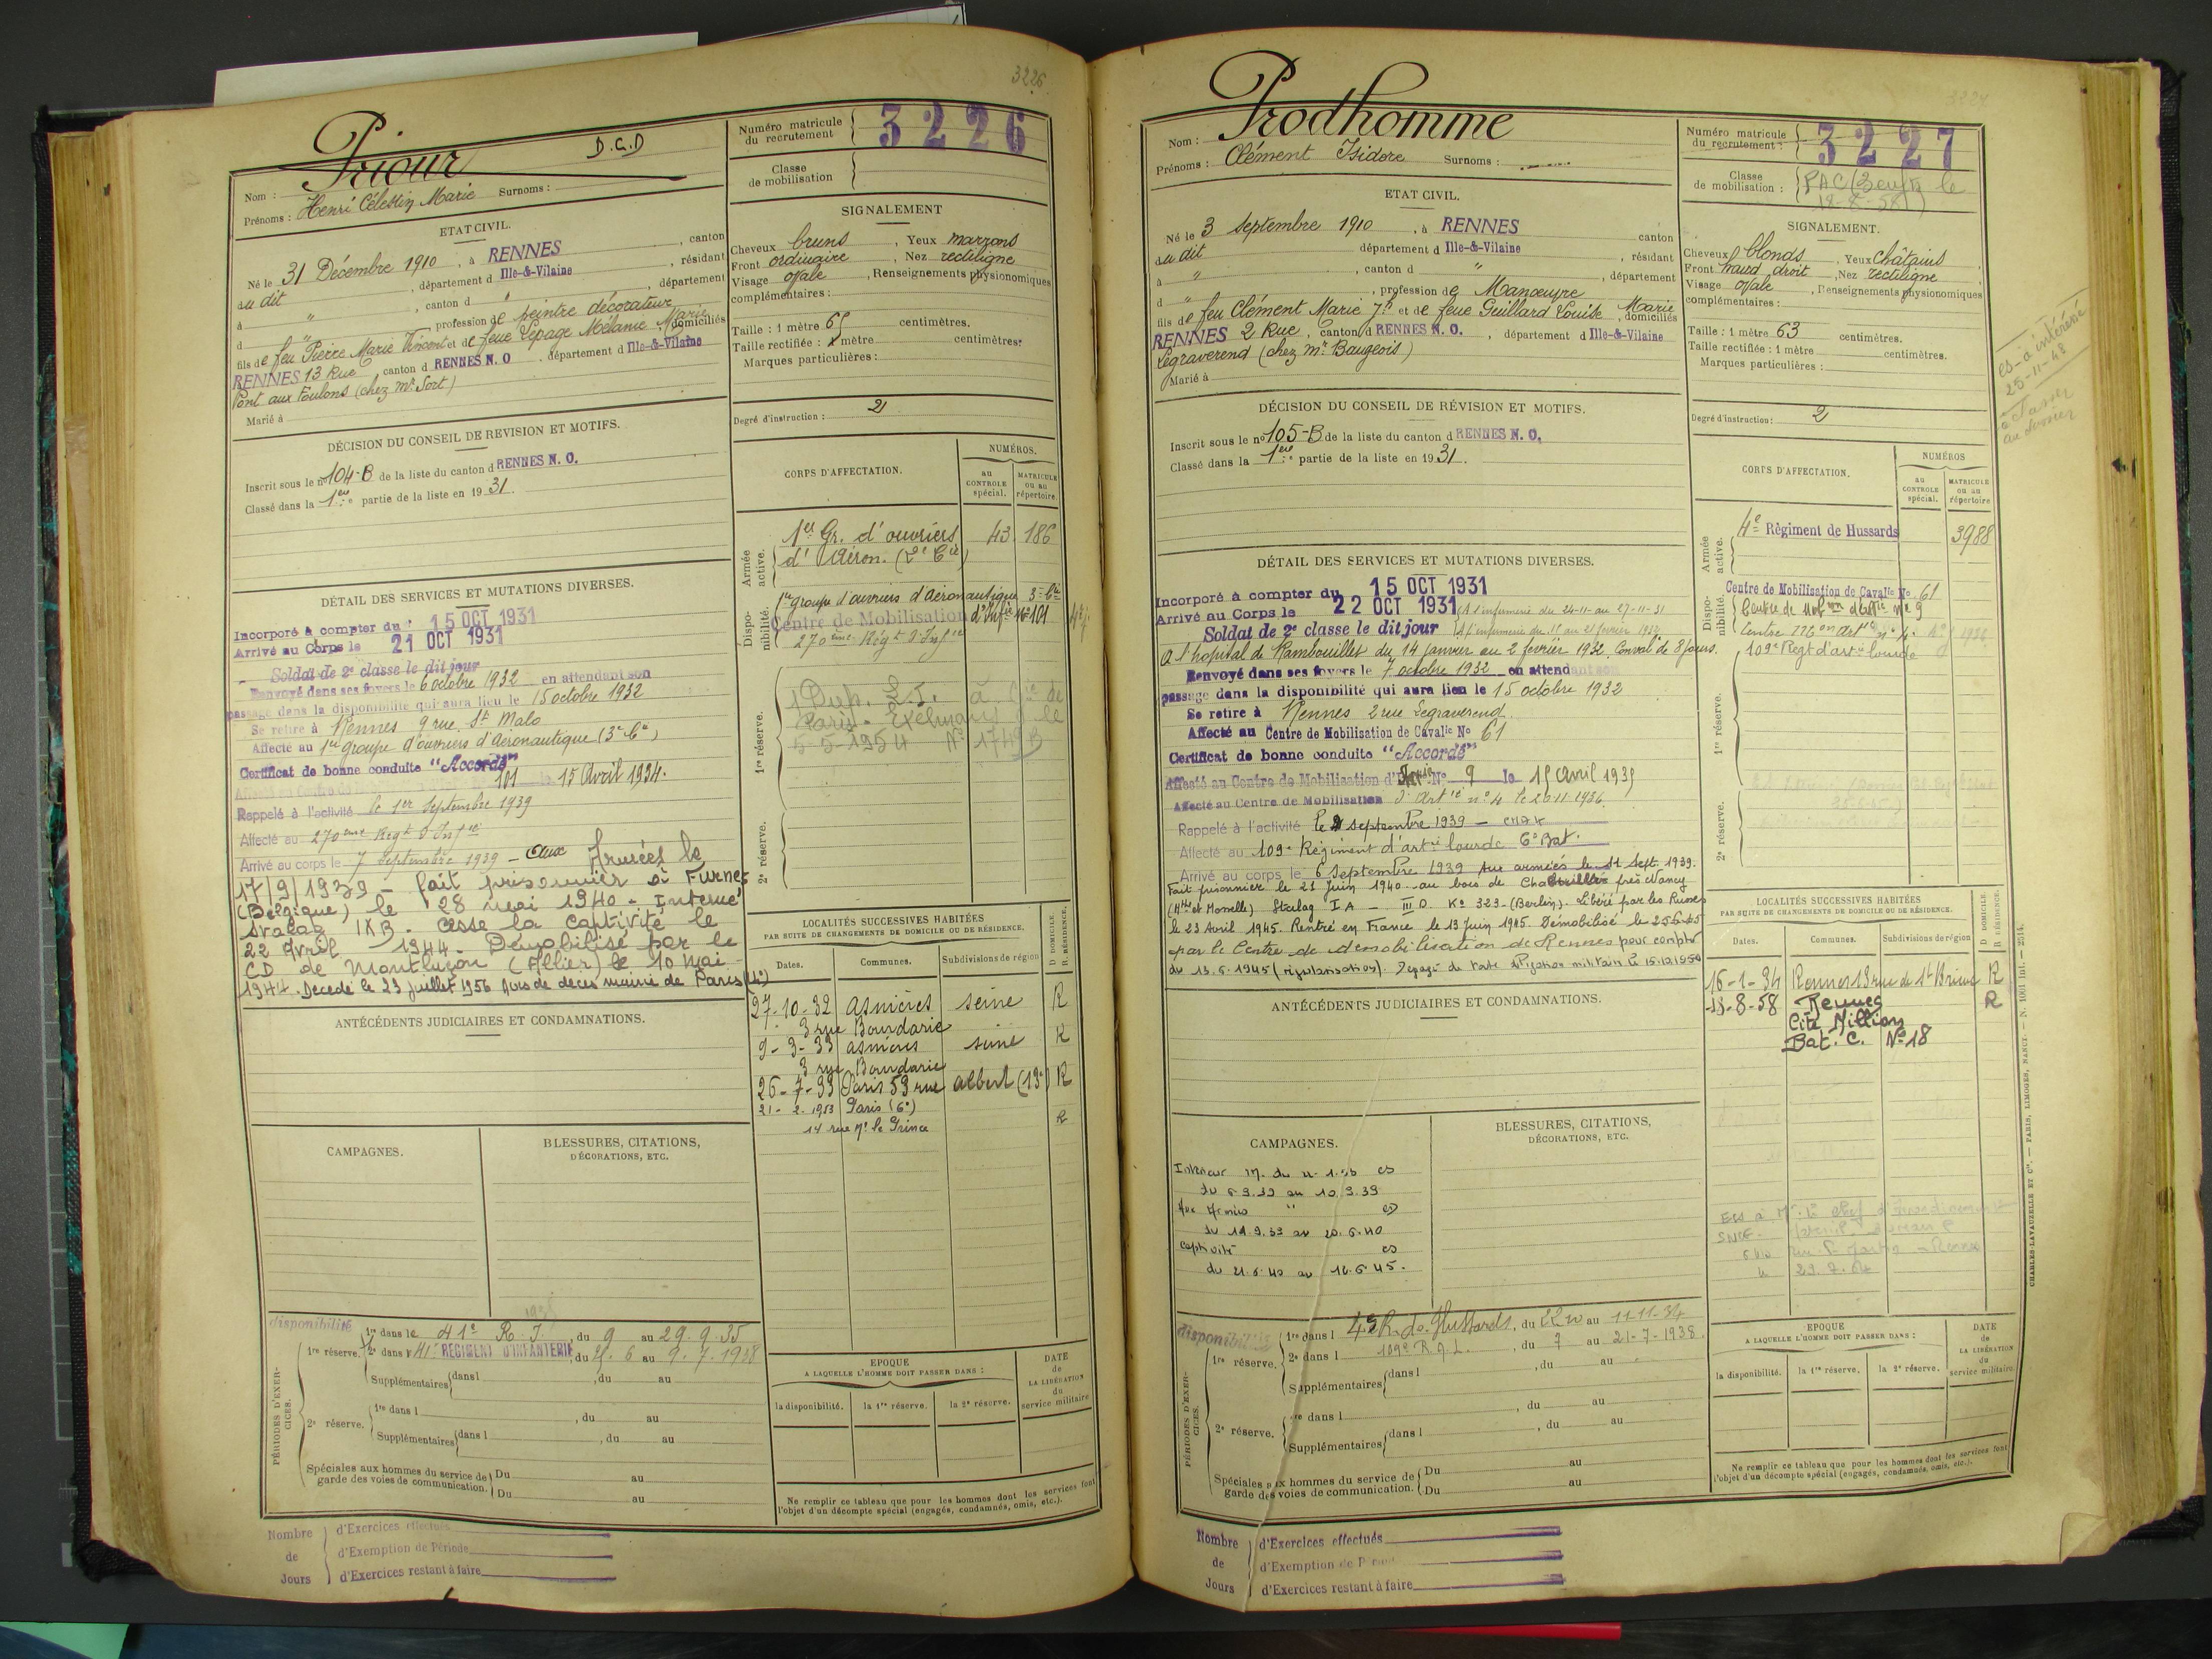 3226
Nom : Priour
D.C.D
Prénoms : Henri Célestin Marie Surnoms :
Numéro matricule du recrutement 3226
Classe de mobilisation
ETAT CIVIL.
Né le 31 Décembre 1910, à RENNES, canton
du dit, département d Ille-&-Vilaine, résidant
à " , canton d " , département
d " profession de peintre décorateur
fils de feu Pierre Marie Vincent et de feue Lepage Mélanie Marie, domiciliés
RENNES 13 Rue, canton d RENNES N. O., département d Ille-&-Vilaine
Pont aux Foulons (chez Mr Sort)
Marié à
SIGNALEMENT
Cheveux bruns, Yeux marrons
Front ordinaire, Nez rectiligne
Visage ovale, Renseignements physionomiques
complémentaires :
Taille : 1 mètre 65 centimètres.
Taille rectifiée : 1 mètre centimètres.
Marques particulières :
Degré d'instruction : 2
DÉCISION DU CONSEIL DE REVISION ET MOTIFS.
Inscrit sous le no 104-B de la liste du canton d RENNES N. O.
Classé dans la 1ère partie de la liste en 1931.
CORPS D'AFFECTATION.
NUMÉROS.
au CONTROLE spécial.
MATRICULE ou au répertoire.
Armée active.
1er Gr. d'ouvriers 43 186
d'Aéron. (2e Cie)
Disponibilité.
1er groupe d'ouvriers d'aéronautique 3e Cie
Centre de Mobilisation d'Infie No 101
270ème Régt d'Infie
1re réserve.
1 Dup. L.I. à
Paris - Exelmans le
5-5-1954 No 1749 B
2e réserve.
DÉTAIL DES SERVICES ET MUTATIONS DIVERSES.
Incorporé à compter du : 15 OCT 1931
Arrivé au Corps le 21 OCT 1931
Soldat de 2e classe le dit jour
Renvoyé dans ses foyers le 6 octobre 1932 en attendant son
passage dans la disponibilité qui aura lieu le 15 octobre 1932
Se retire à Rennes 9 rue St Malo
Affecté au 1er groupe d'ouvriers d'Aéronautique (3e Cie)
Certificat de bonne conduite "Accordé"
101 le 15 Avril 1934.
Rappelé à l'activité le 1er Septembre 1939
Affecté au 270ème Régt d'Infie
Arrivé au corps le 7 Septembre 1939 - Aux Armées le
17/9/1939 - fait prisonnier à Furnes
(Belgique) le 28 mai 1940 - Interné
Stalag IXB. Cesse la captivité le
22 Avril 1944. Démobilisé par le
CD de Montluçon (Allier) le 10 Mai
1944. Décédé le 23 juillet 1956 Avis de décès mairie de Paris
ANTÉCÉDENTS JUDICIAIRES ET CONDAMNATIONS.
LOCALITÉS SUCCESSIVES HABITÉES
PAR SUITE DE CHANGEMENTS DE DOMICILE OU DE RÉSIDENCE.
Dates. Communes. Subdivisions de région D DOMICILE R RÉSIDENCE.
27-10-32 Asnières seine R
3 rue Bourdarie
9-3-33 asnières seine R
3 rue Bourdarie
26-7-33 Paris 53 rue albert (13e) R
21-2-1953 Paris (6e)
14 rue Mr le Prince R
CAMPAGNES.
BLESSURES, CITATIONS, DÉCORATIONS, ETC.
PÉRIODES D'EXERCICES.
disponibilité
1re réserve. 1re dans le 41e R.I., du 9 au 29.9.35
2e dans le 41e REGIMENT D'INFANTERIE, du 25.6 au 9.7.1938
Supplémentaires dans l , du au
2e réserve. 1re dans l , du au
Supplémentaires dans l , du au
Spéciales aux hommes du service de garde des voies de communication. Du au
Du au
EPOQUE
A LAQUELLE L'HOMME DOIT PASSER DANS :
la disponibilité. la 1re réserve. la 2e réserve.
DATE de LA LIBÉRATION du service militaire
Ne remplir ce tableau que pour les hommes dont les services font
l'objet d'un décompte spécial (engagés, condamnés, omis, etc.).
Nombre de Jours
d'Exercices effectués
d'Exemption de Période
d'Exercices restant à faire
3227
Nom : Prodhomme
Prénoms : Clément Isidore Surnoms :
Numéro matricule du recrutement : 3227
Classe de mobilisation :
ETAT CIVIL.
Né le 3 Septembre 1910, à RENNES canton
du dit département d Ille-&-Vilaine, résidant
à " , canton d " , département
d " , profession de Manoeuvre
fils de feu Clément Marie Jh et de feue Guillard Louise Marie, domiciliés
RENNES 2 Rue, canton d RENNES N. O., département d Ille-&-Vilaine
Legraverend (chez Mr Baugeois)
Marié à
SIGNALEMENT.
Cheveux blonds, Yeux châtains
Front droit, Nez rectiligne
Visage ovale, Renseignements physionomiques
complémentaires :
Taille : 1 mètre 63 centimètres.
Taille rectifiée : 1 mètre centimètres.
Marques particulières :
Degré d'instruction : 2
à intéressé
25-11-48
à classer
au dossier
DÉCISION DU CONSEIL DE RÉVISION ET MOTIFS.
Inscrit sous le no 105-B de la liste du canton d RENNES N. O.
Classé dans la 1ère partie de la liste en 1931.
CORPS D'AFFECTATION.
NUMÉROS
au CONTROLE spécial.
MATRICULE ou au répertoire
Armée active.
4e Régiment de Hussards 3988
Disponibilité.
Centre de Mobilisation de Cavalie No 61
Centre de Mobon d'Artie no 9
Centre Mon Artie no 4
1re réserve.
109e Régt d'artie lourde
2e réserve.
DÉTAIL DES SERVICES ET MUTATIONS DIVERSES.
Incorporé à compter du 15 OCT 1931
Arrivé au Corps le 22 OCT 1931 (A l'infirmerie du 24-11 au 27-11-31
Soldat de 2e classe le dit jour (A l'infirmerie du 15 au 21 février 1932
A l'hopital de Rambouillet du 14 janvier au 2 février 1932. Conval de 8 jours.
Renvoyé dans ses foyers le 7 octobre 1932 en attendant son
passage dans la disponibilité qui aura lieu le 15 octobre 1932
Se retire à Rennes 2 rue Legraverend.
Affecté au Centre de Mobilisation de Cavalie No 61
Certificat de bonne conduite "Accordé"
Affecté au Centre de Mobilisation d'Artie No 9 le 15 avril 1935
Affecté au Centre de Mobilisation d'Artie no 4 le 20.11.1936.
Rappelé à l'activité le 2 septembre 1939
Affecté au 109e Régiment d'artie lourde 6e Bat.
Arrivé au corps le 6 Septembre 1939 Aux armées le 11 Sept. 1939.
Fait prisonnier le 21 Juin 1940 au bois de près Nancy
(Mthe et Moselle) Stalag IA - III D. Ko 323 - (Berlin). Libéré par les Russes
le 23 Avril 1945. Rentré en France le 13 Juin 1945. Démobilisé le 25.6.45
par le Centre de démobilisation de Rennes pour compter
du 13.6.1945 (régularisation). Dégagé de toute obligation militaire le 15.10.1959
ANTÉCÉDENTS JUDICIAIRES ET CONDAMNATIONS.
LOCALITÉS SUCCESSIVES HABITÉES
PAR SUITE DE CHANGEMENTS DE DOMICILE OU DE RÉSIDENCE.
Dates. Communes. Subdivisions de région D DOMICILE R RÉSIDENCE.
16-1-34 Rennes 13 rue de St Brieuc R
18-8-58 Rennes R
Cité Villian
Bat. C. No 18
CAMPAGNES.
BLESSURES, CITATIONS, DÉCORATIONS, ETC.
Intérieur
du 6.9.39 au 10.9.39
Aux Armées
du 11.9.39 au 20.6.40
Captivité
du 21.6.40 au 12.6.45.
PÉRIODES D'EXERCICES.
disponibilité
1re réserve. 1re dans l 4e R. de Hussards, du 22 au 11-11-34
2e dans l 109e R.A.L., du 7 au 21-7-1938
Supplémentaires dans l , du au
2e réserve. 1re dans l , du au
Supplémentaires dans l , du au
Spéciales aux hommes du service de garde des voies de communication. Du au
Du au
EPOQUE
A LAQUELLE L'HOMME DOIT PASSER DANS :
la disponibilité. la 1re réserve. la 2e réserve.
DATE de LA LIBÉRATION du service militaire
Ne remplir ce tableau que pour les hommes dont les services font
l'objet d'un décompte spécial (engagés, condamnés, omis, etc.).
CHARLES-LAVAUZELLE ET Cie. — PARIS, LIMOGES, NANCY. — N. 1001 Int. — 2514.
Nombre de Jours
d'Exercices effectués
d'Exemption de Période
d'Exercices restant à faire